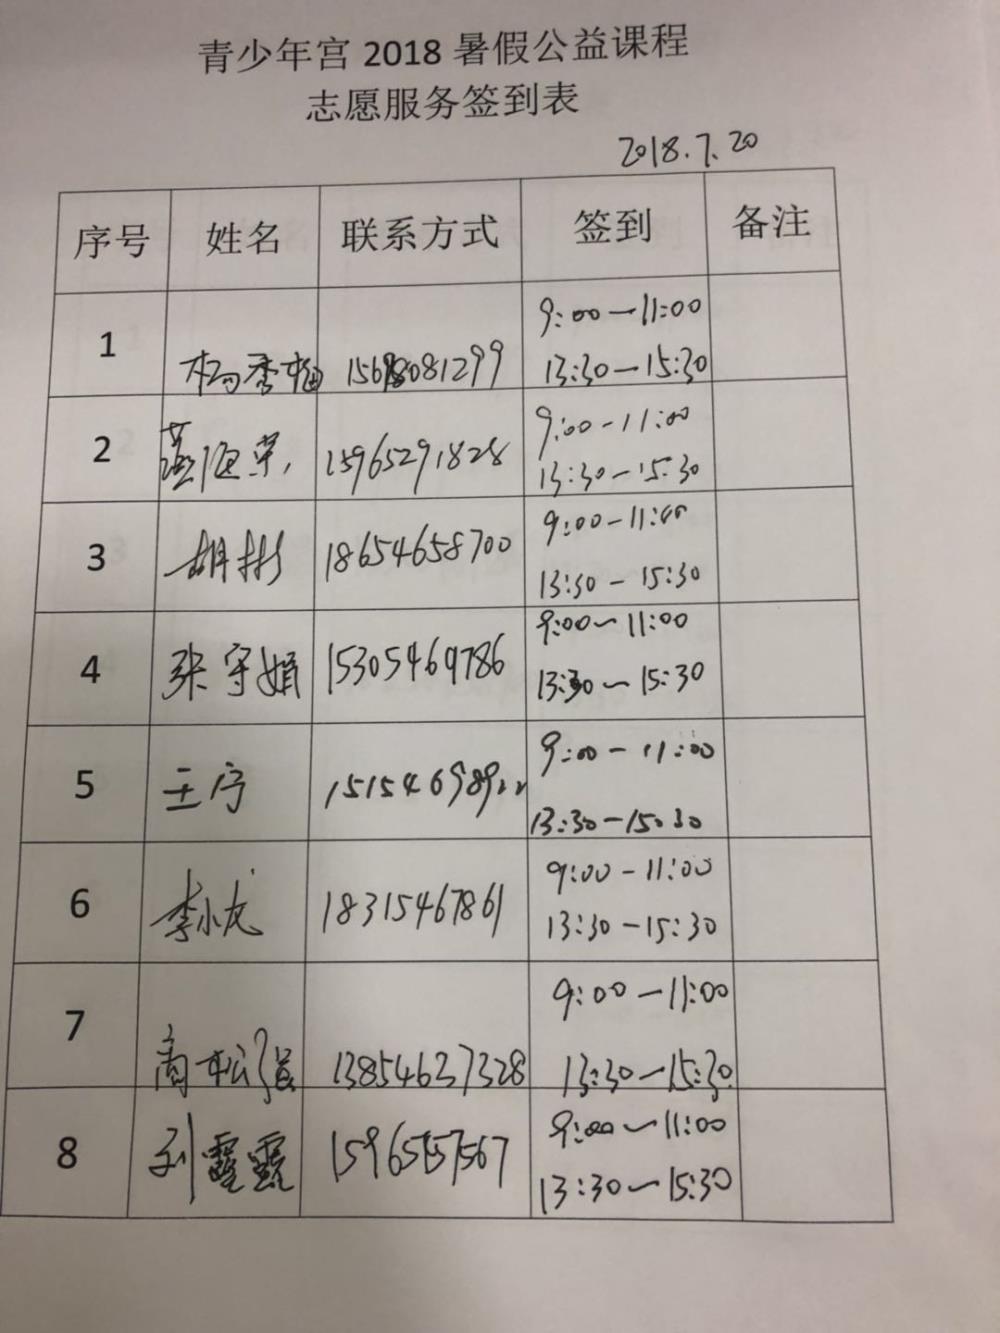 青少年宫 2018 暑假公益课程
志愿服务签到表
2018.7.20
序号 姓名 联系方式 签到 备注
9:00—11:00
1 杨秀梅
13:30—15:30
9:00-11:00
2 15965291828
13:30—15:30
9:00-11:00
3 胡彬 18654658700
13:30-15:30
9:00—11:00
4 张守娟 15305469786
13:30—15:30
9:00-11:00
5 王宁
13:30-15:30
9:00-11:00
6 李小龙 18315467861
13:30-15:30
9:00—11:00
7 高松 13854637328
13:30—15:30
9:00—11:00
8 刘霞霞
13:30—15:30